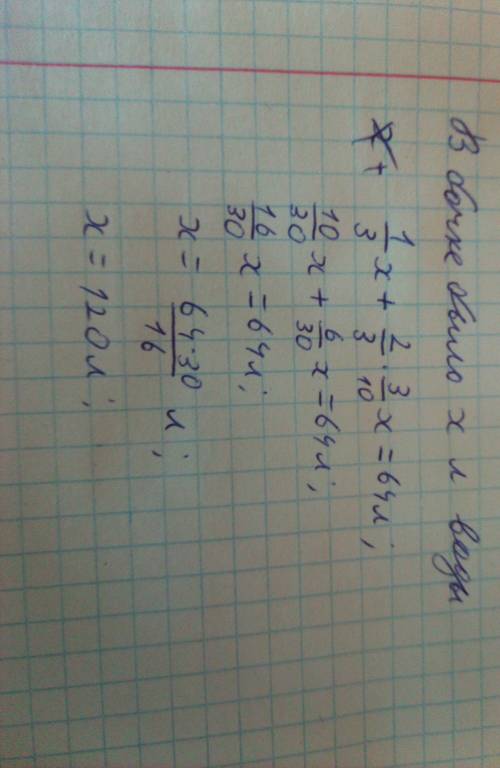 В бочке было x л воды
x + 1/3 x + 2/3 · 3/10 x = 64л;
10/30 x + 6/30 x = 64л;
16/30 x = 64л;
x = 64·30/16 л;
x = 120л;